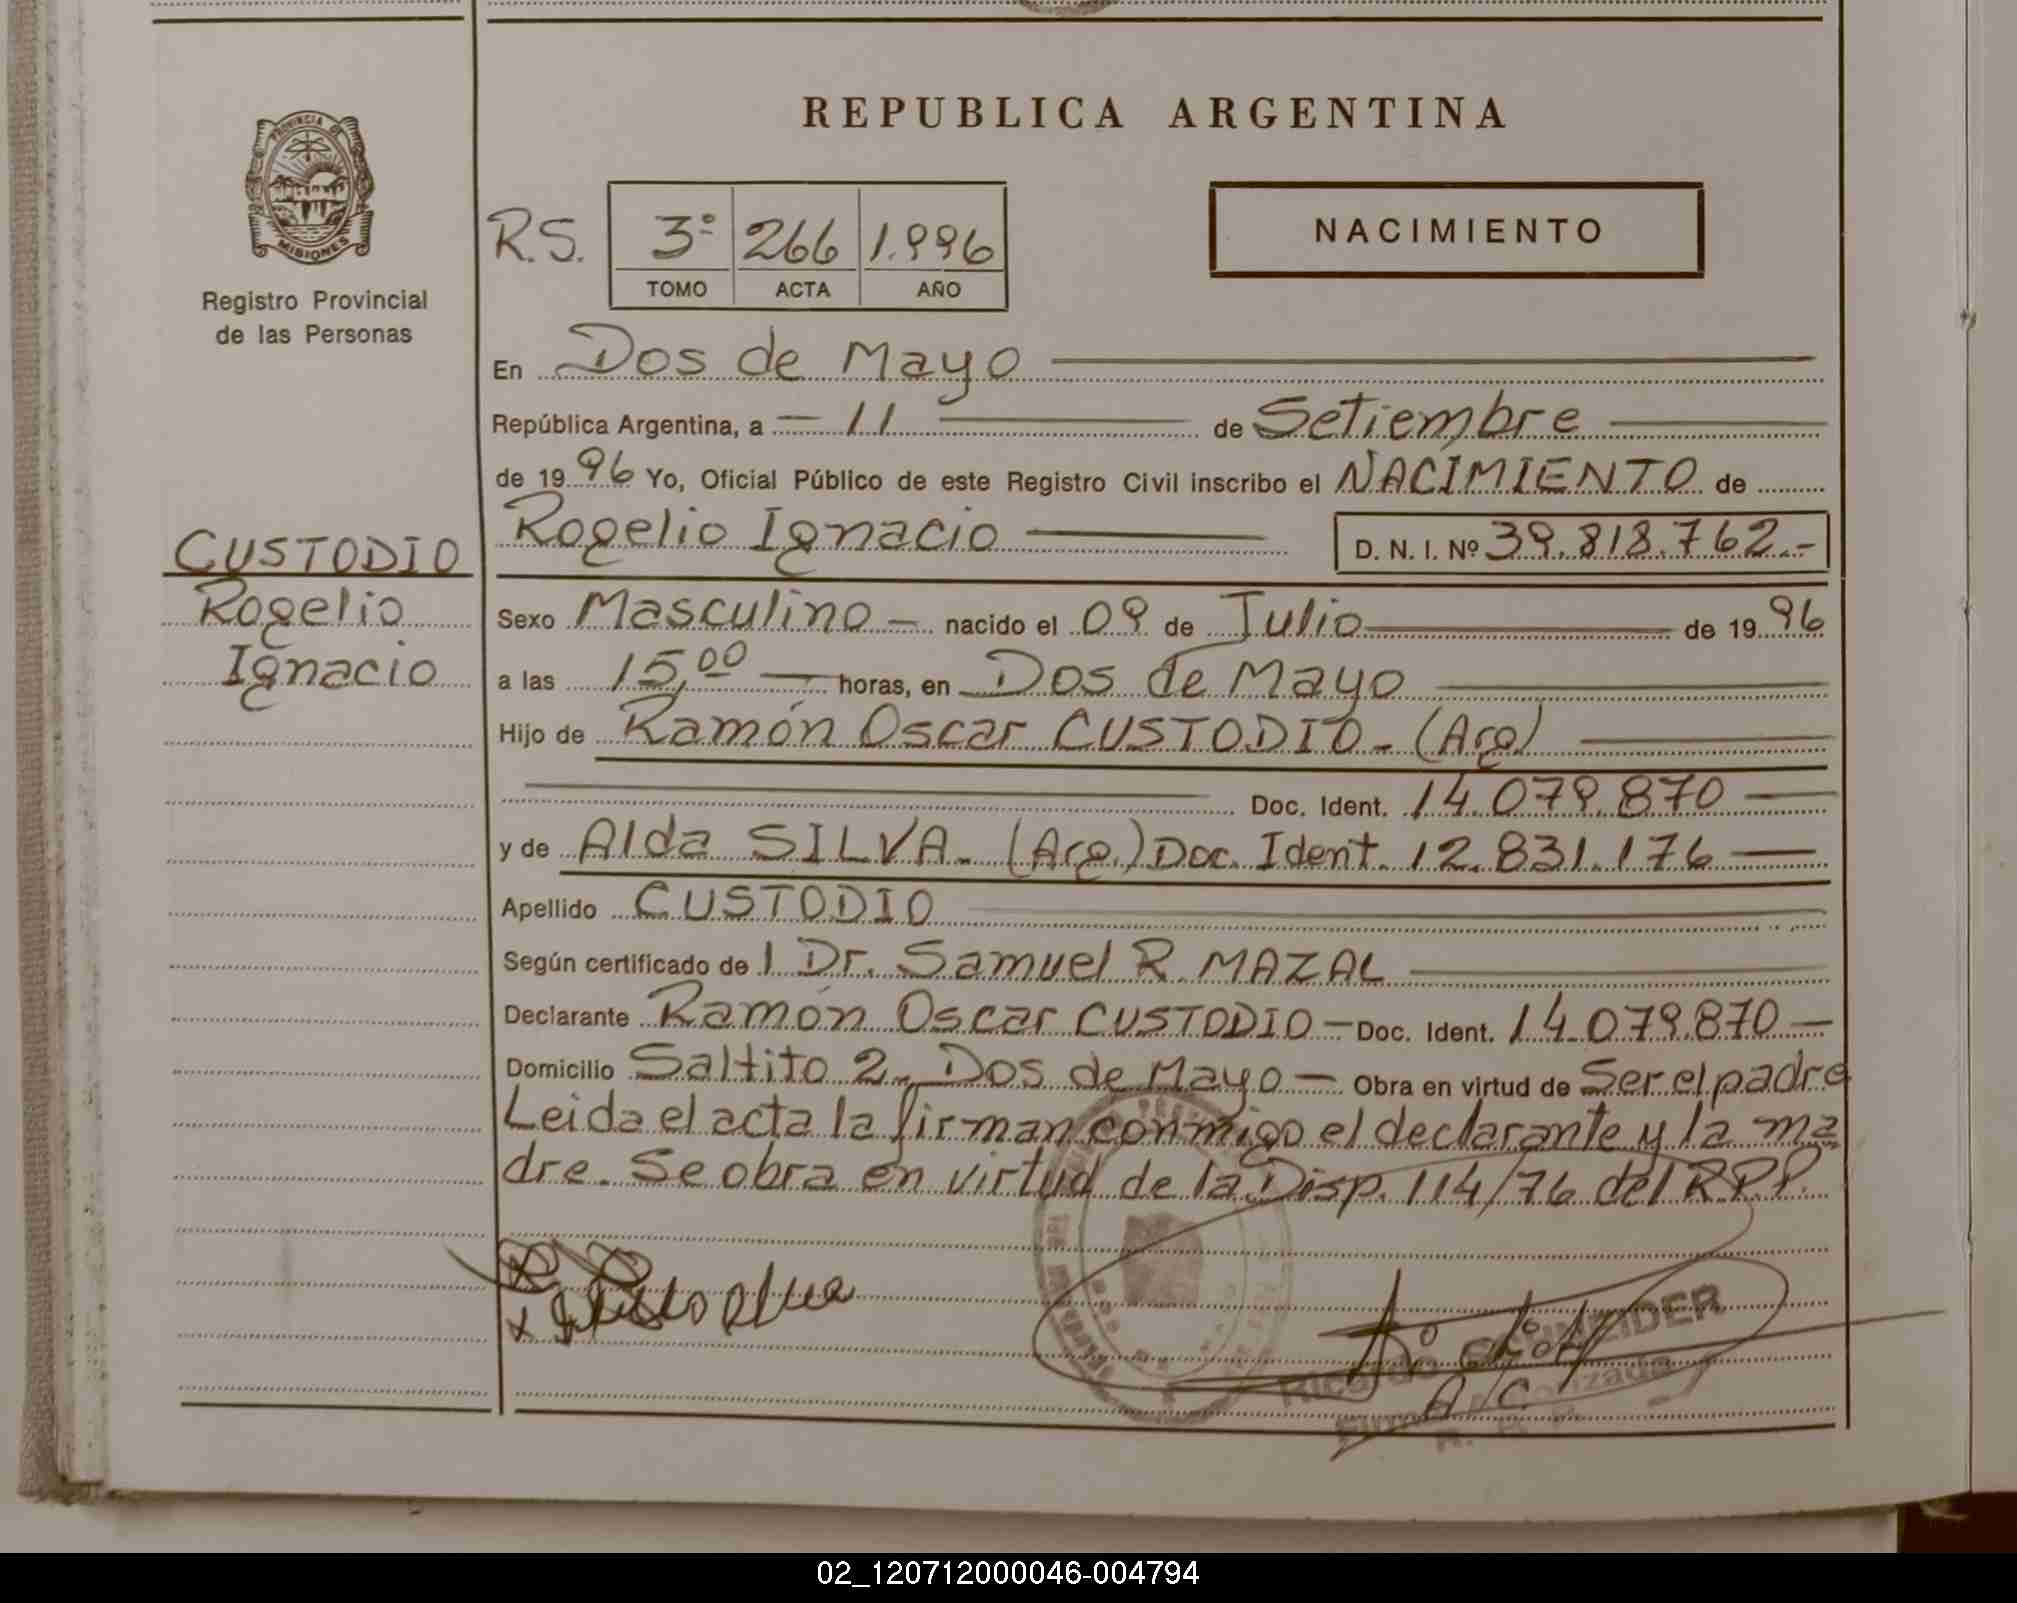 PROVINCIA DE
MISIONES
Registro Provincial
de las Personas
CUSTODIO
Rogelio
Ignacio
REPUBLICA ARGENTINA
R.S. 3º 266 1.996
TOMO ACTA AÑO
NACIMIENTO
En Dos de Mayo
República Argentina, a — 11 de Setiembre
de 1996 Yo, Oficial Público de este Registro Civil inscribo el NACIMIENTO de
Rogelio Ignacio D. N. I. Nº 39.818.762.-
Sexo Masculino — nacido el 09 de Julio de 1996
a las 15,00 — horas, en Dos de Mayo
Hijo de Ramón Oscar CUSTODIO - (Arg)
Doc. Ident. 14.079.870 —
y de Alda SILVA - (Arg.) Doc. Ident. 12.831.176 —
Apellido CUSTODIO
Según certificado de l Dr. Samuel R. MAZAL
Declarante Ramón Oscar CUSTODIO — Doc. Ident. 14.079.870 —
Domicilio Saltito 2 - Dos de Mayo — Obra en virtud de Ser el padre
Leida el acta la firman conmigo el declarante y la ma
dre. Se obra en virtud de la Disp. 114/76 del R.P.P.
Ricardo SCHNEIDER
A/C
Firma Autorizada
02_120712000046-004794